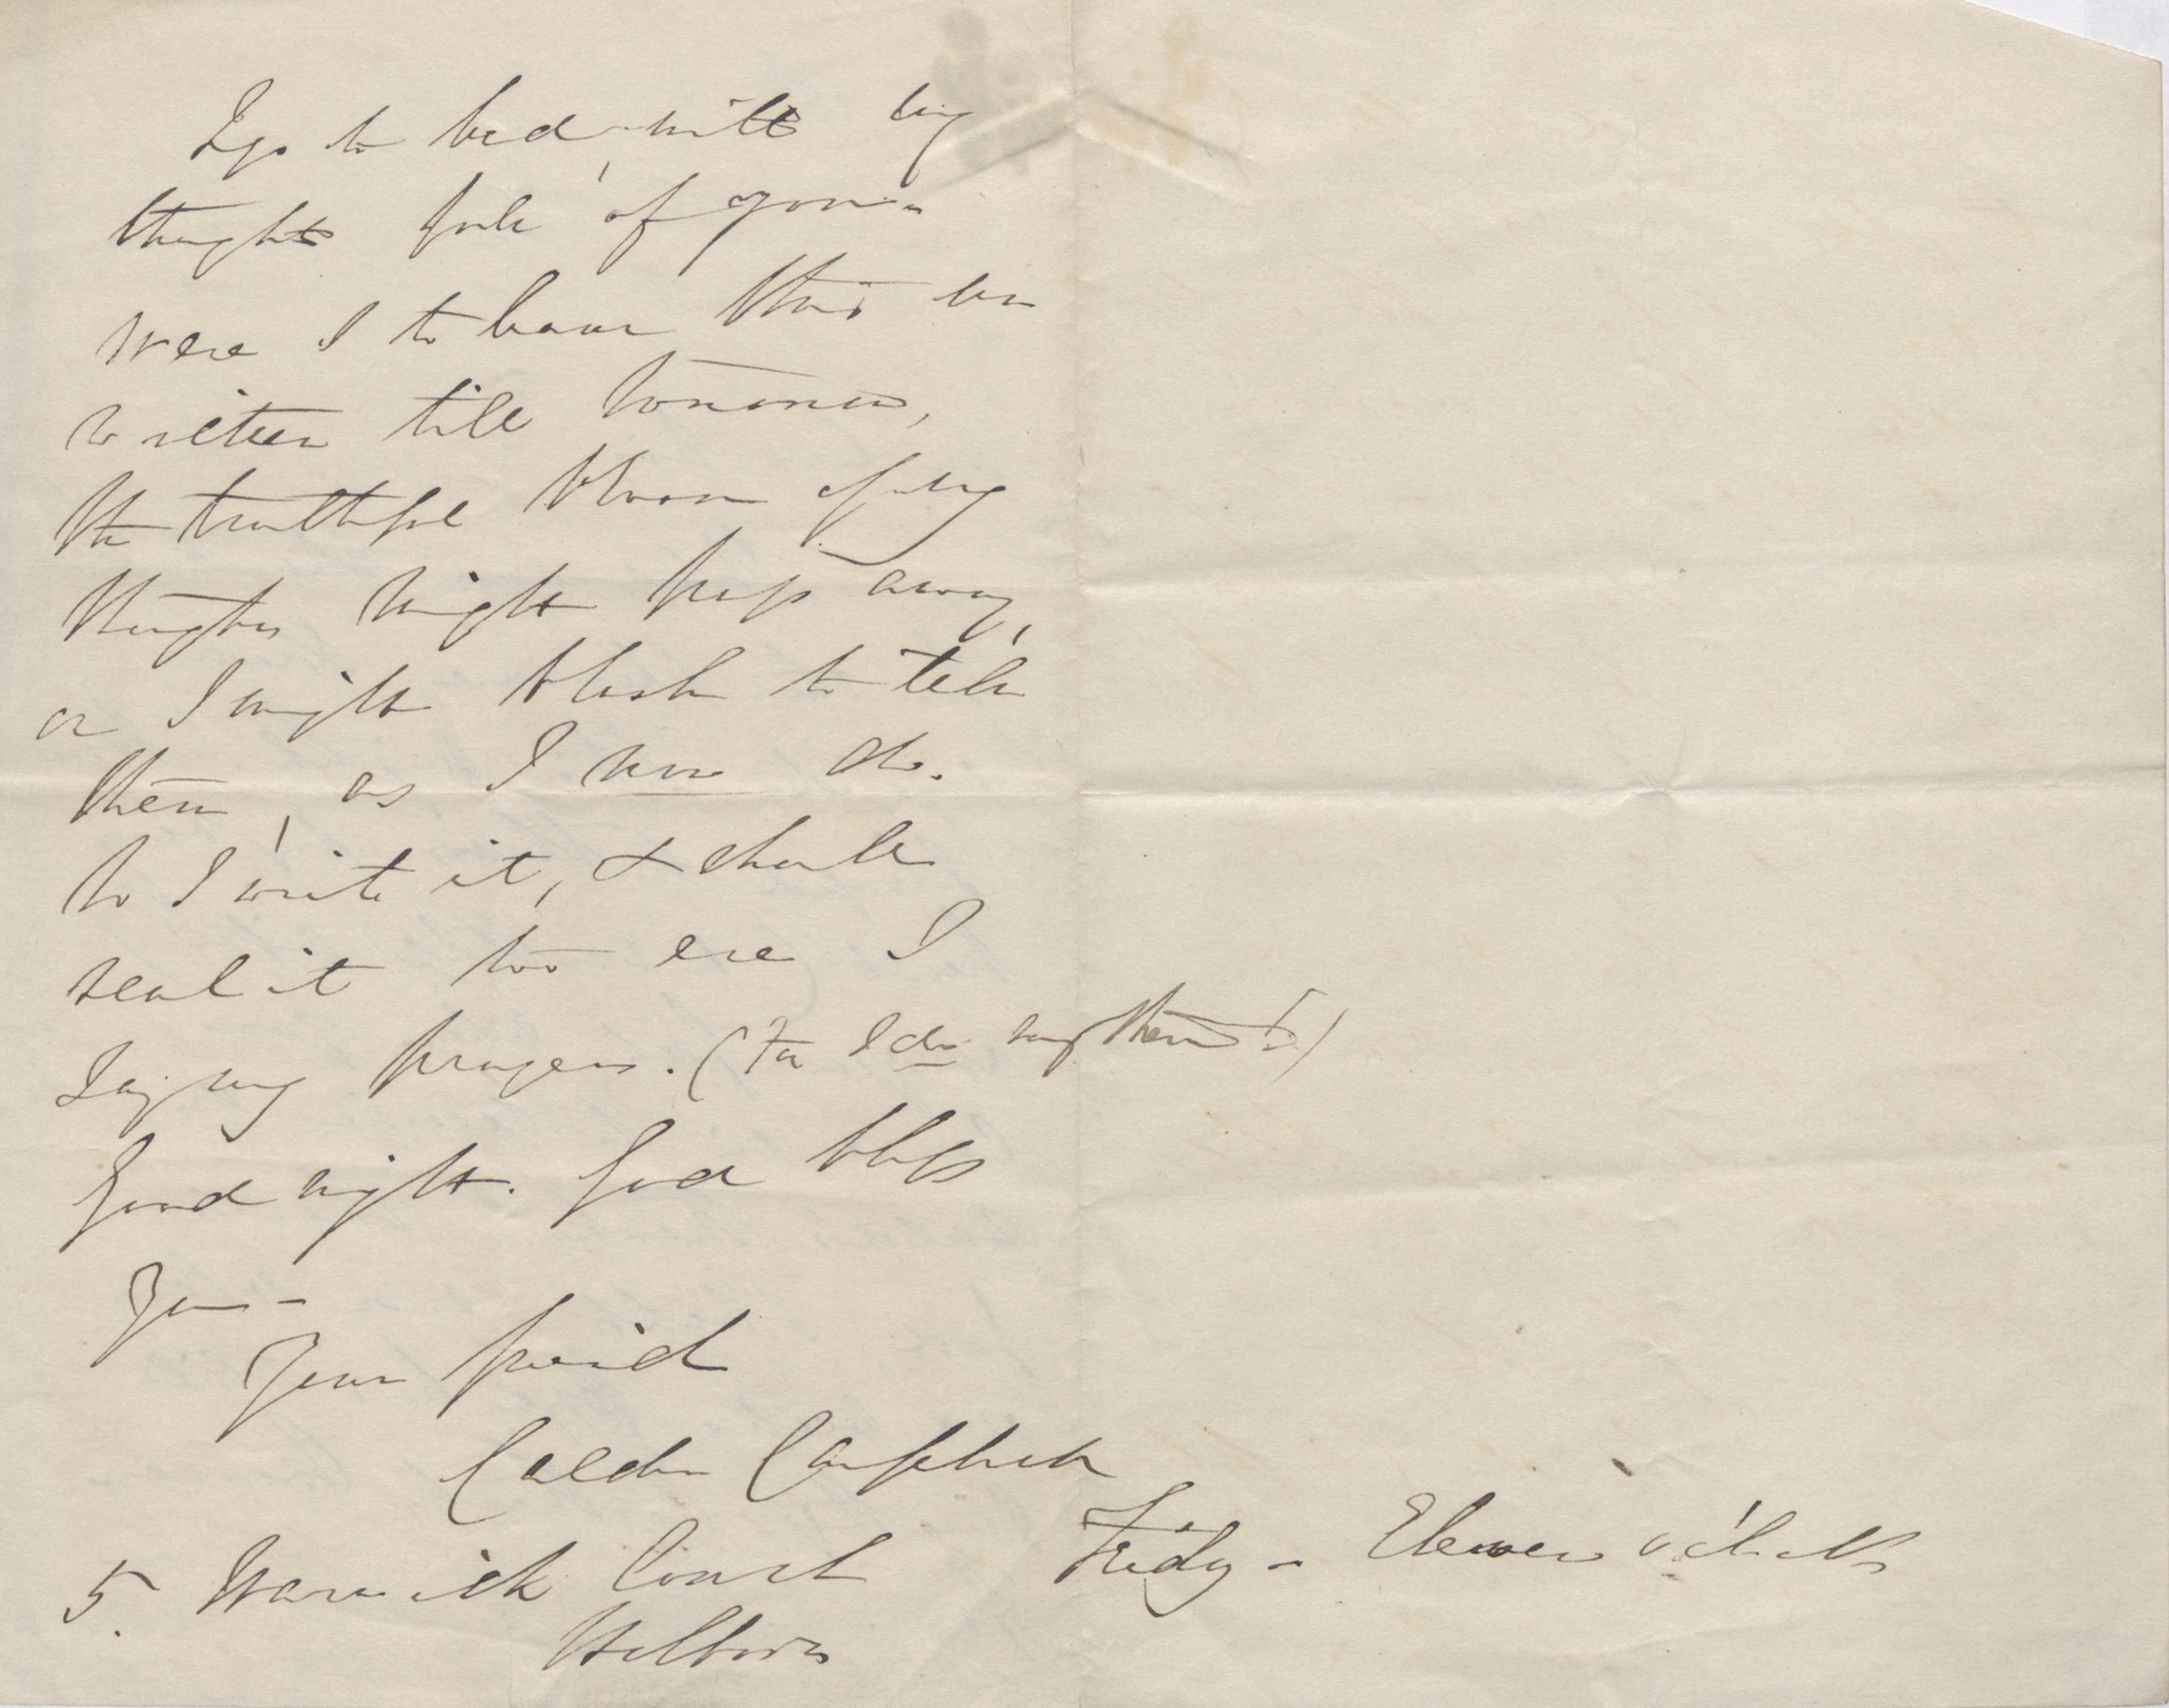 I go to bed, with my
thoughts full of you -
Were I to leave this un
written till tomorrow,
the truthful bloom of my
thoughts might pass away,
or I might blush to tell
them, as I now do.
So I write it, & shall
seal it too ere I
say my prayers. (For I do say them!)
Good night. God bless
you -
Your friend
Calder Campbell
5. Warwick Court
Holborn
Friday - Eleven o'clock